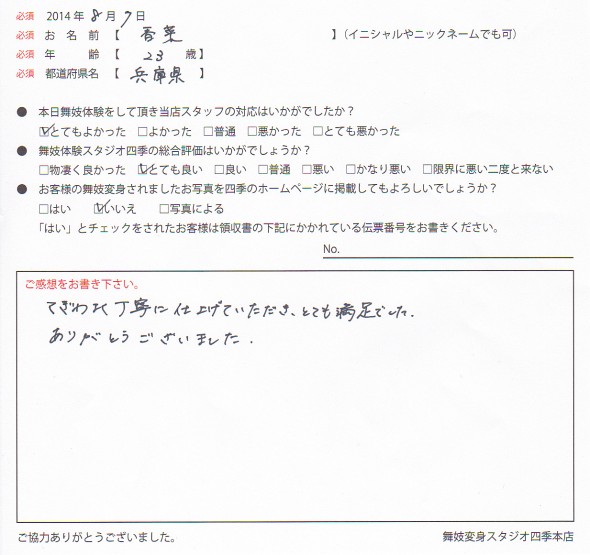 必須 2014年 8月 7日
必須 お名前【 香菜 】(イニシャルやニックネームでも可)
必須 年齢【 23 歳】
必須 都道府県名【 兵庫県 】
● 本日舞妓体験をして頂き当店スタッフの対応はいかがでしたか?
☑とてもよかった □よかった □普通 □悪かった □とても悪かった
● 舞妓体験スタジオ四季の総合評価はいかがでしょうか?
□物凄く良かった ☑とても良い □良い □普通 □悪い □かなり悪い □限界に悪い二度と来ない
● お客様の舞妓変身されましたお写真を四季のホームページに掲載してもよろしいでしょうか?
□はい ☑いいえ □写真による
「はい」とチェックをされたお客様は領収書の下記にかかれている伝票番号をお書きください。
No.
ご感想をお書き下さい。
てぎわよく丁寧に仕上げていただき、とても満足でした.
ありがとうございました.
ご協力ありがとうございました。
舞妓変身スタジオ四季本店